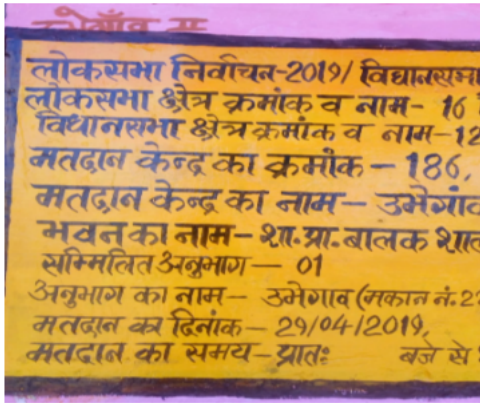 लोकसभा निर्वाचन-2019/ विधानसभा
लोकसभा क्षेत्र क्रमांक व नाम- 16
विधानसभा क्षेत्र क्रमांक व नाम-12
मतदान केन्द्र का क्रमांक - 186,
मतदान केन्द्र का नाम- उभेगांव
भवन का नाम- शा.प्रा.बालक शाल
सम्मिलित अनुभाग - 01
अनुभाग का नाम- उभेगाव (मकान नं.2
मतदान का दिनांक- 29/04/2019,
मतदान का समय-प्रातः बजे से